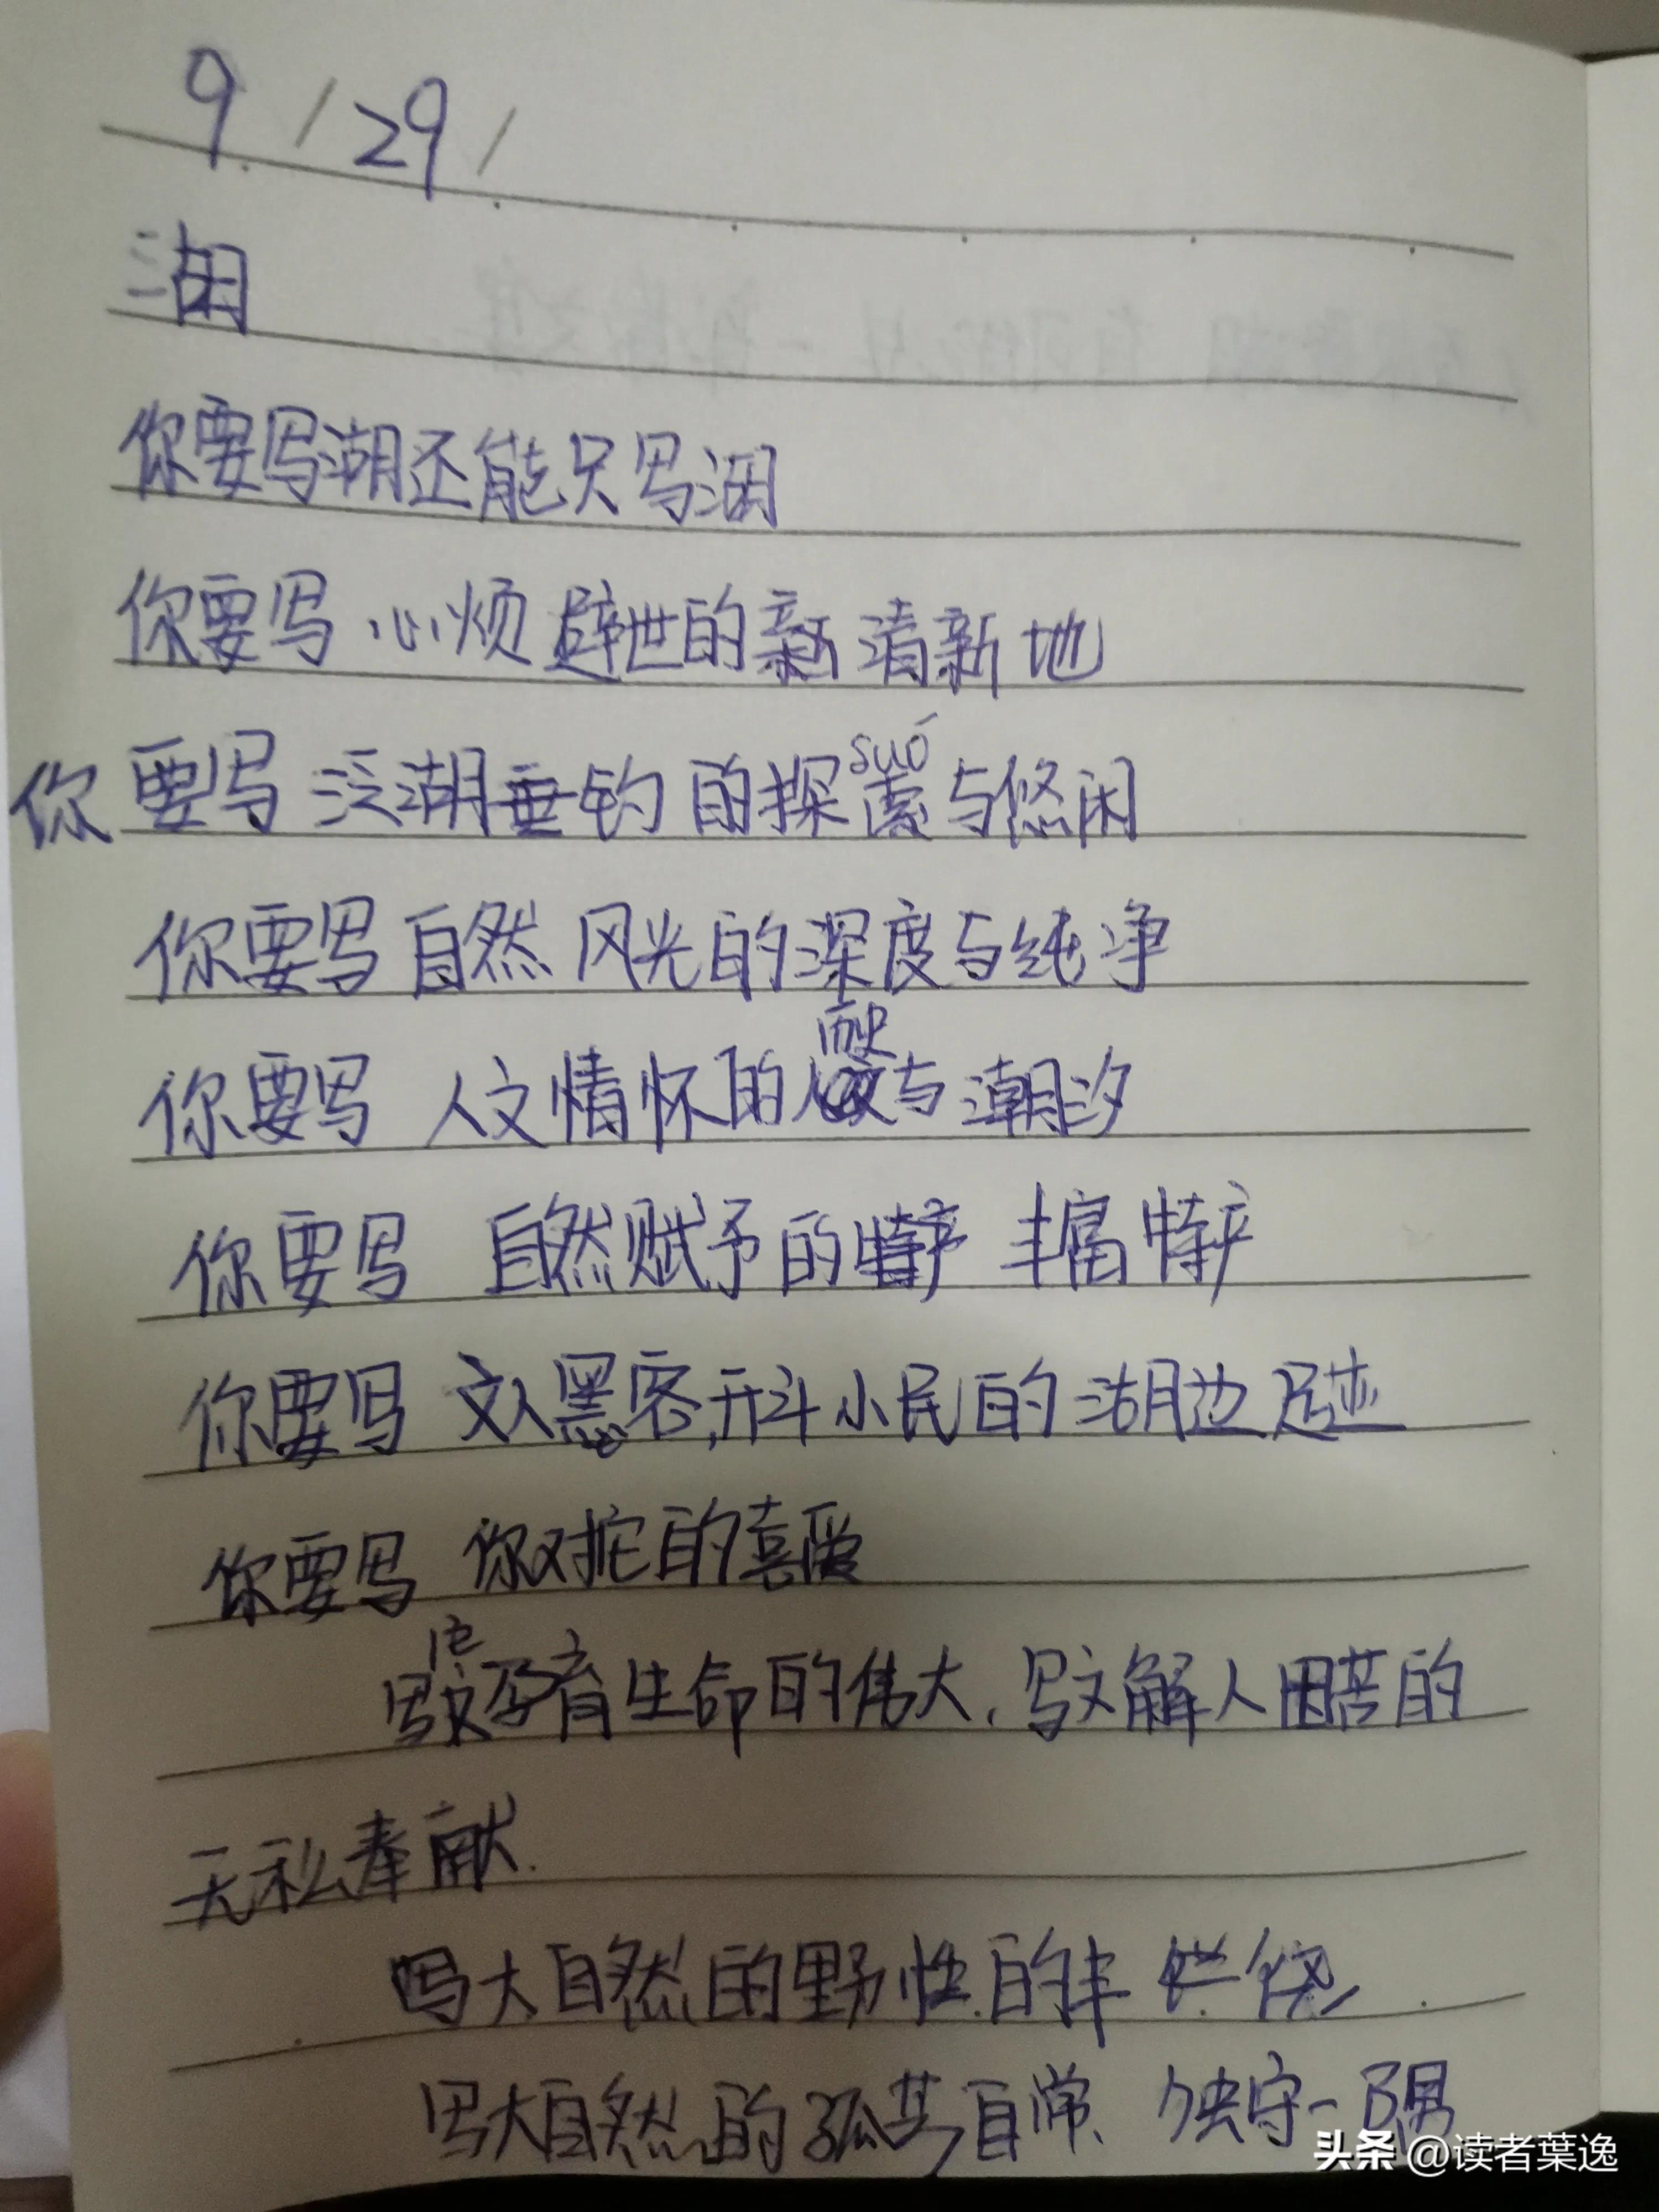 9/29/
湖
你要写湖还能只写湖
你要写 心烦避世的新清新地
你要写泛湖垂钓的探索suǒ与悠闲
你要写自然风光的深度与纯净
你要写 人文情怀的历史与潮汐
你要写 自然赋予的特产 丰富特产
你要写 文人墨客,升斗小民的湖边足迹
你要写 你对它的喜爱
写它孕育生命的伟大,写它解人困苦的
无私奉献.
写大自然的野性的丰饶
写大自然的孤芳自赏、独守一隅
头条 @读者葉逸